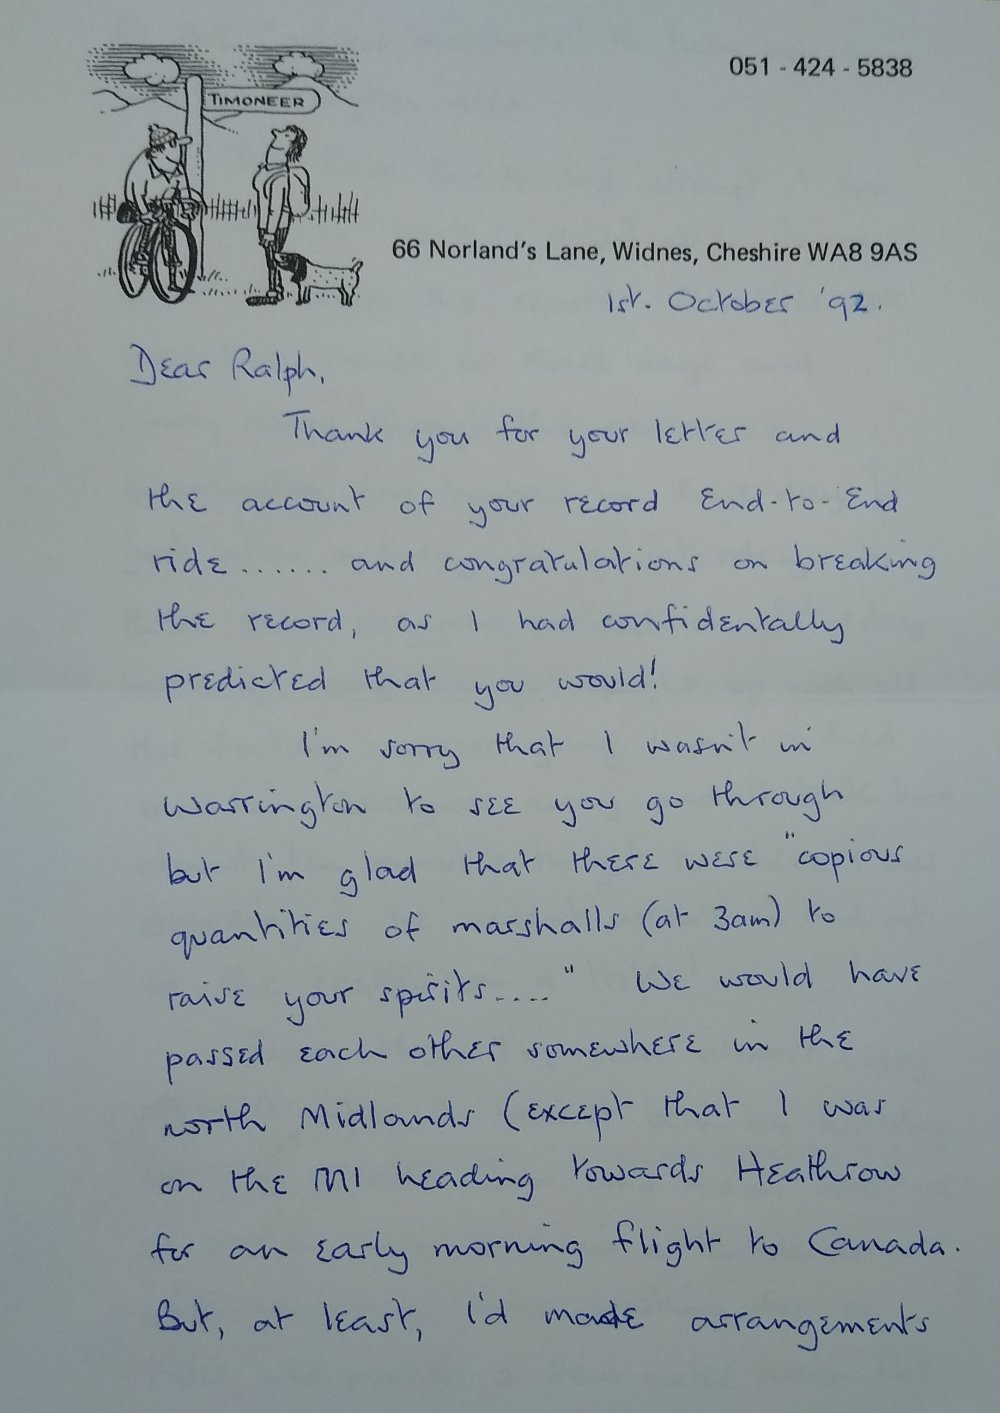 051 - 424 - 5838
TIMONEER
66 Norland's Lane, Widnes, Cheshire WA8 9AS
1st. October '92.
Dear Ralph,
Thank you for your letter and
the account of your record End-to-End
ride...... and congratulations on breaking
the record, as I had confidentally
predicted that you would!
I'm sorry that I wasn't in
Warrington to see you go through
but I'm glad that there were "copious
quantities of marshalls (at 3am) to
raise your spirits...." We would have
passed each other somewhere in the
north Midlands (except that I was
on the M1 heading towards Heathrow
for an early morning flight to Canada.
But, at least, I'd made arrangements